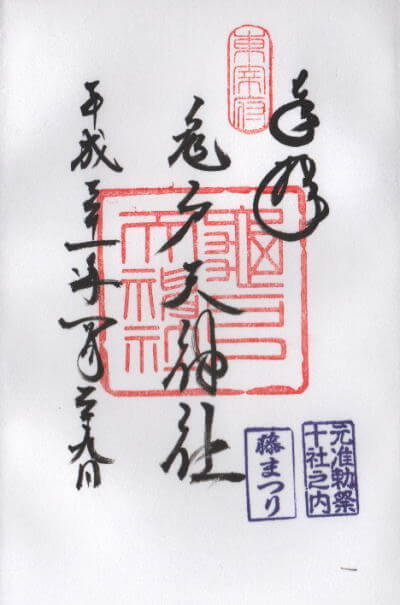 奉拝
東宰府
亀戸天神社
龜戸天神社
平成二十一年四月二十九日
元准勅祭
十社之内
藤まつり